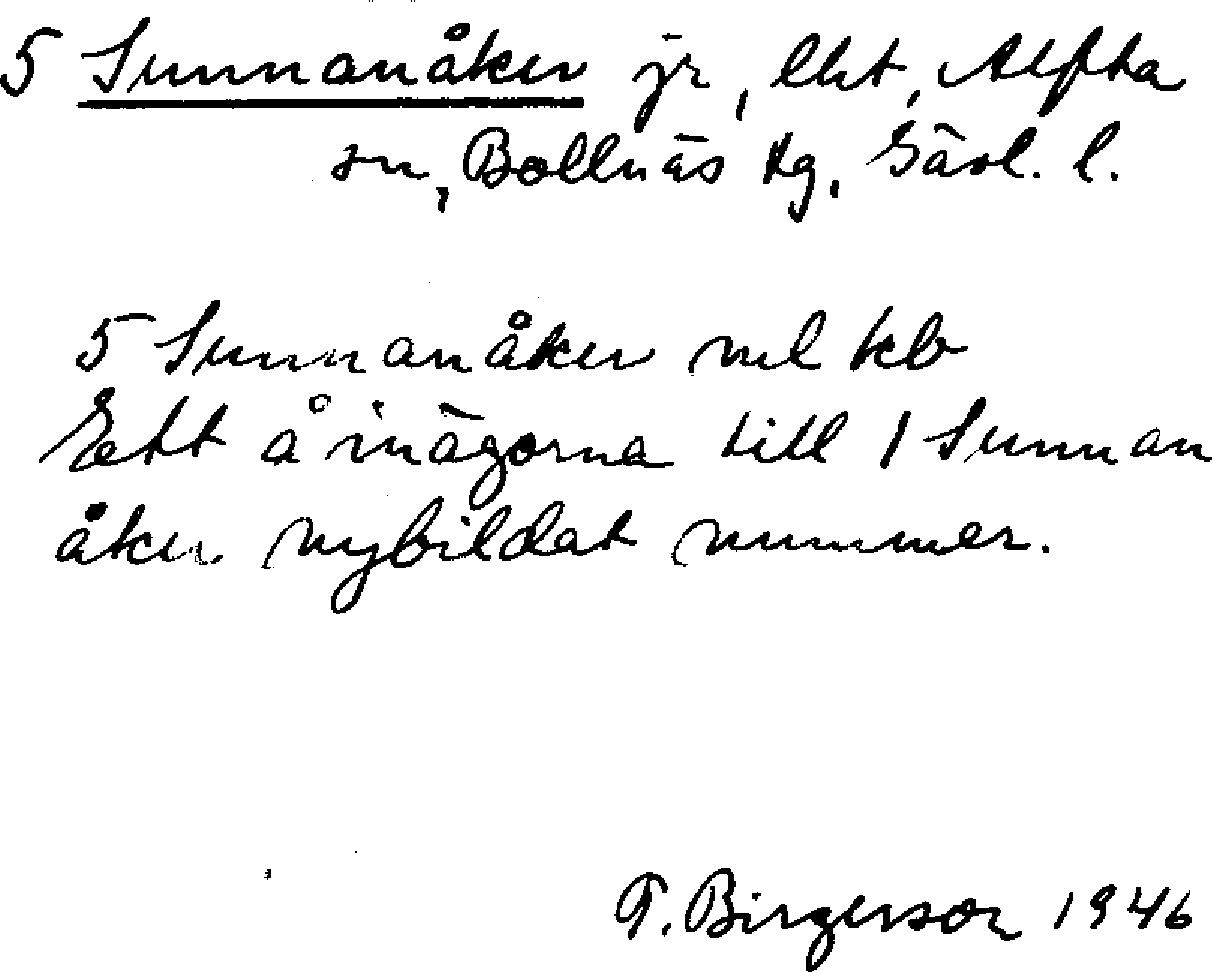 5 Sunnanåker jr, lht, Alfta
sn, Bollnäs tg, Gävl. l.
5 Sunnanåker enl kb
Ett å inägorna till 1 Sunnan
åker nybildat nummer.
F. Birgerson 1946